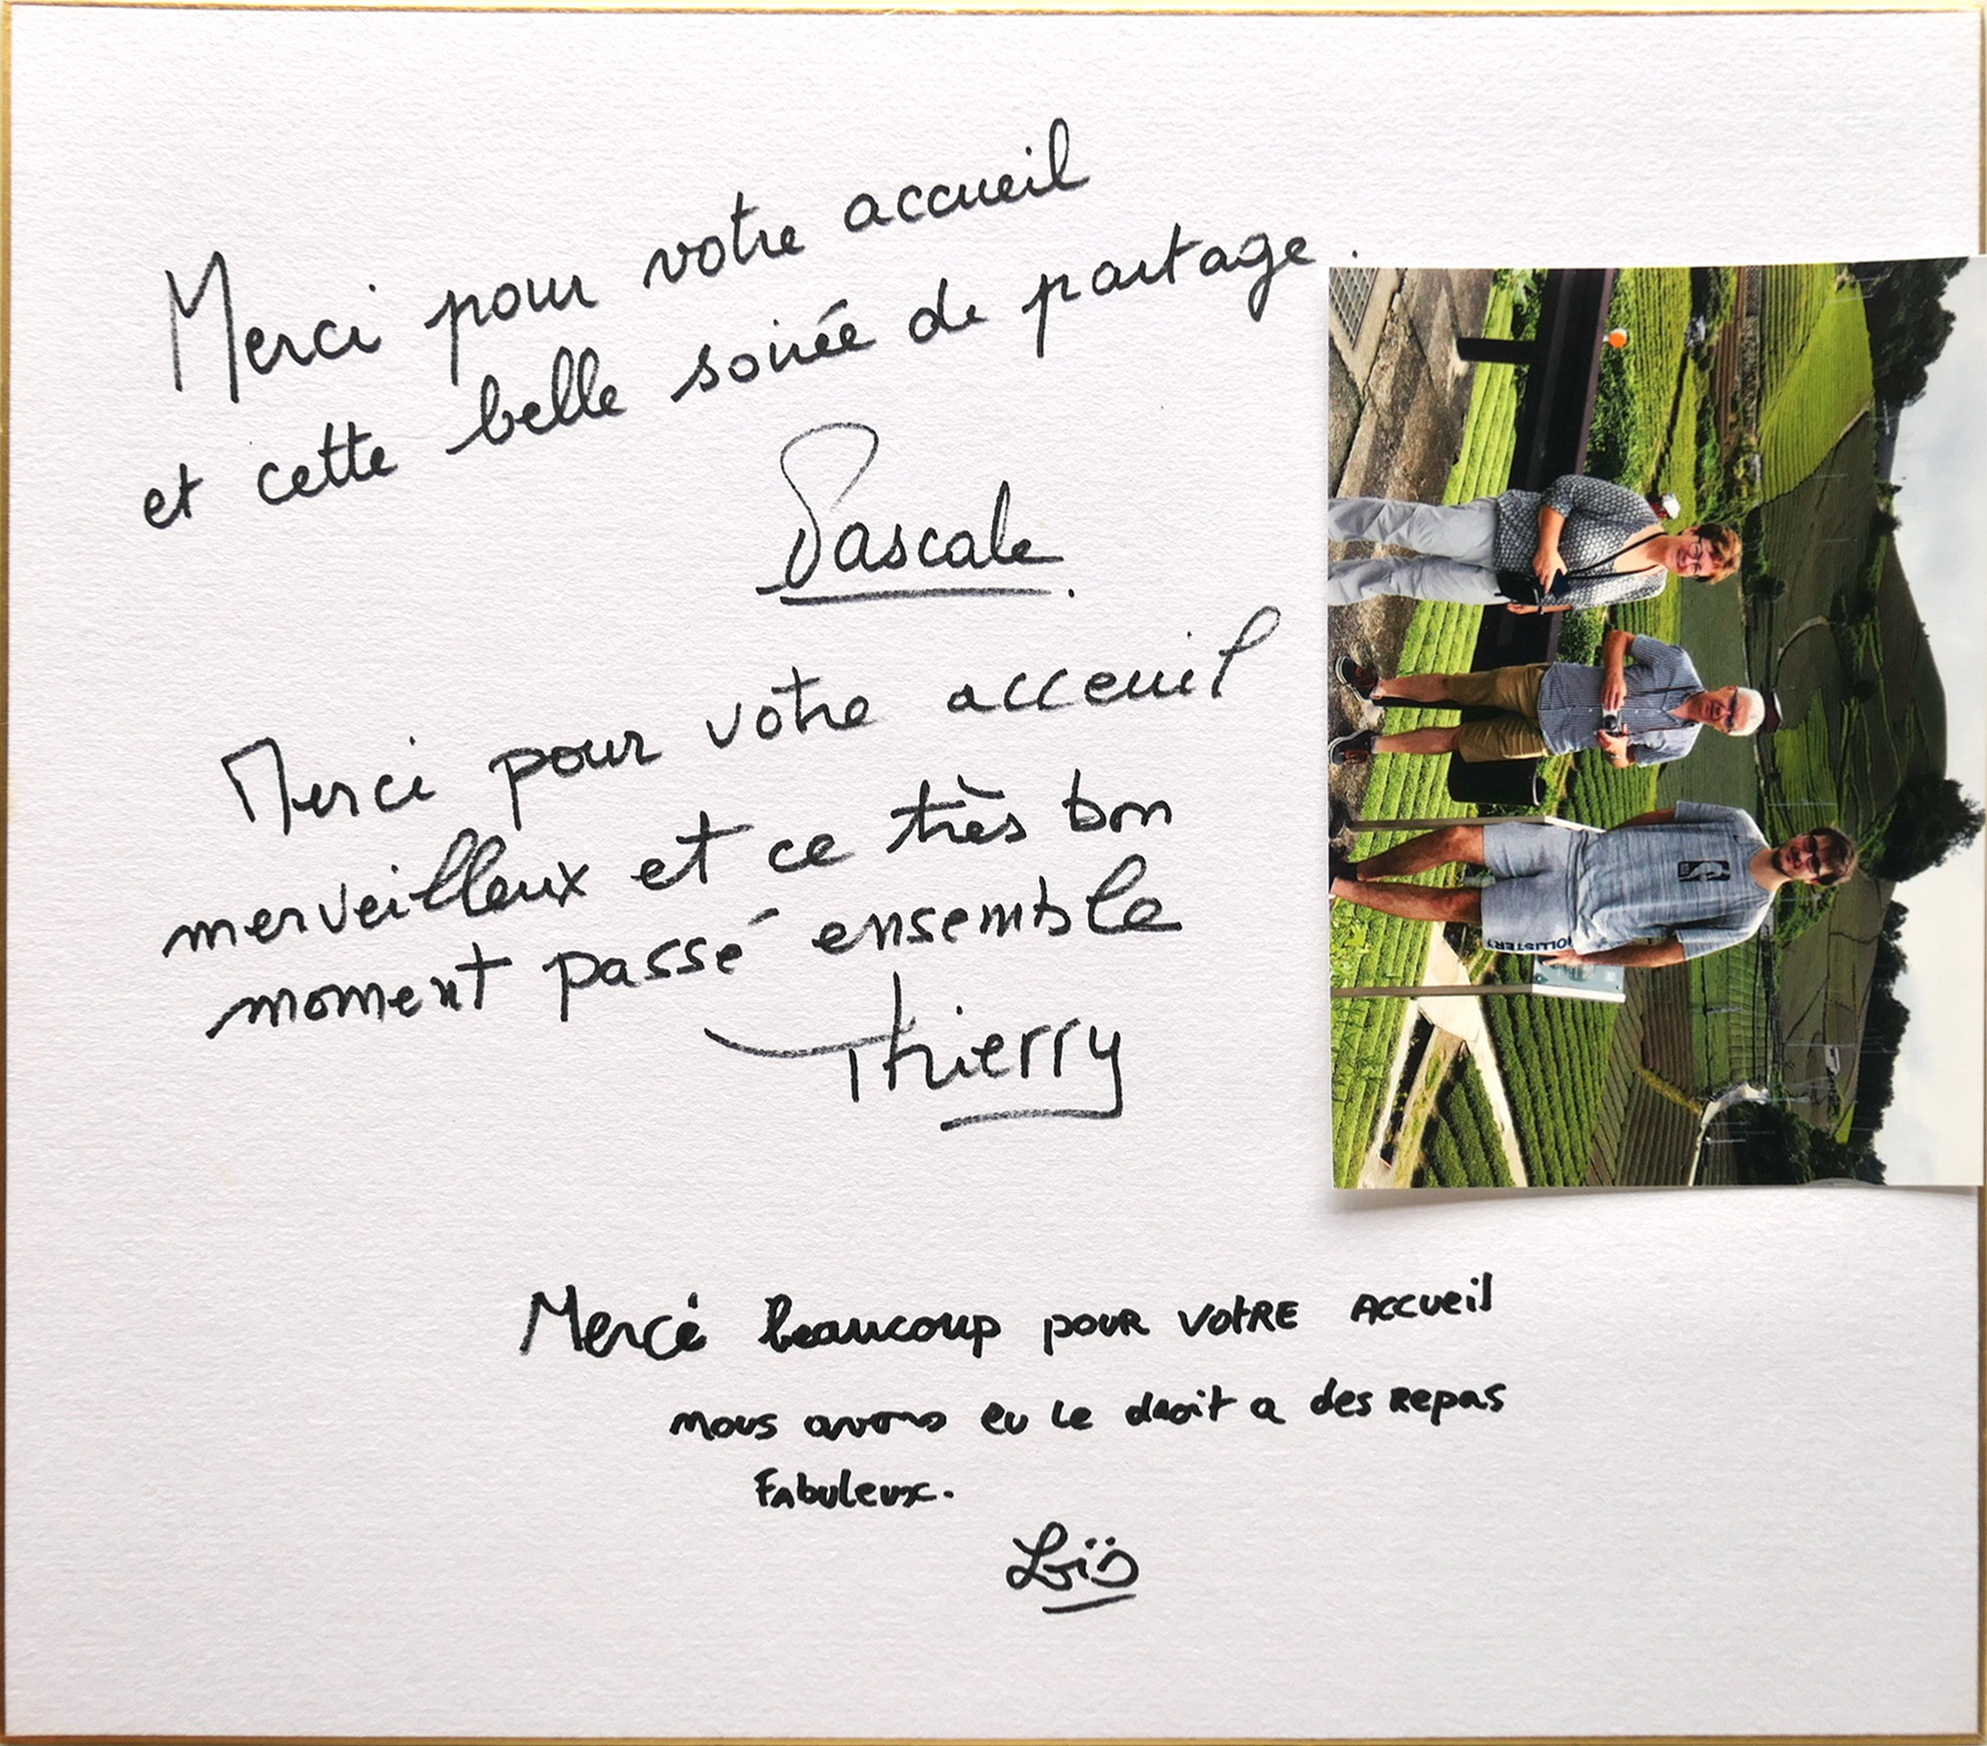 Merci pour votre accueil
et cette belle soirée de partage.
Pascale.
Merci pour votre acceuil
merveilleux et ce très bon
moment passé ensemble
Thierry
Merci beaucoup pour votre accueil
nous avons eu le droit a des repas
Fabuleux.
Loïs
HOLLISTER